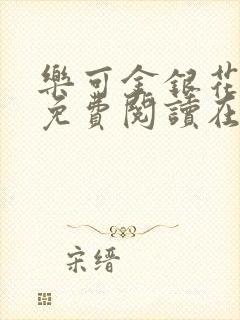 樂可金銀花
免費閱讀在
宋缙